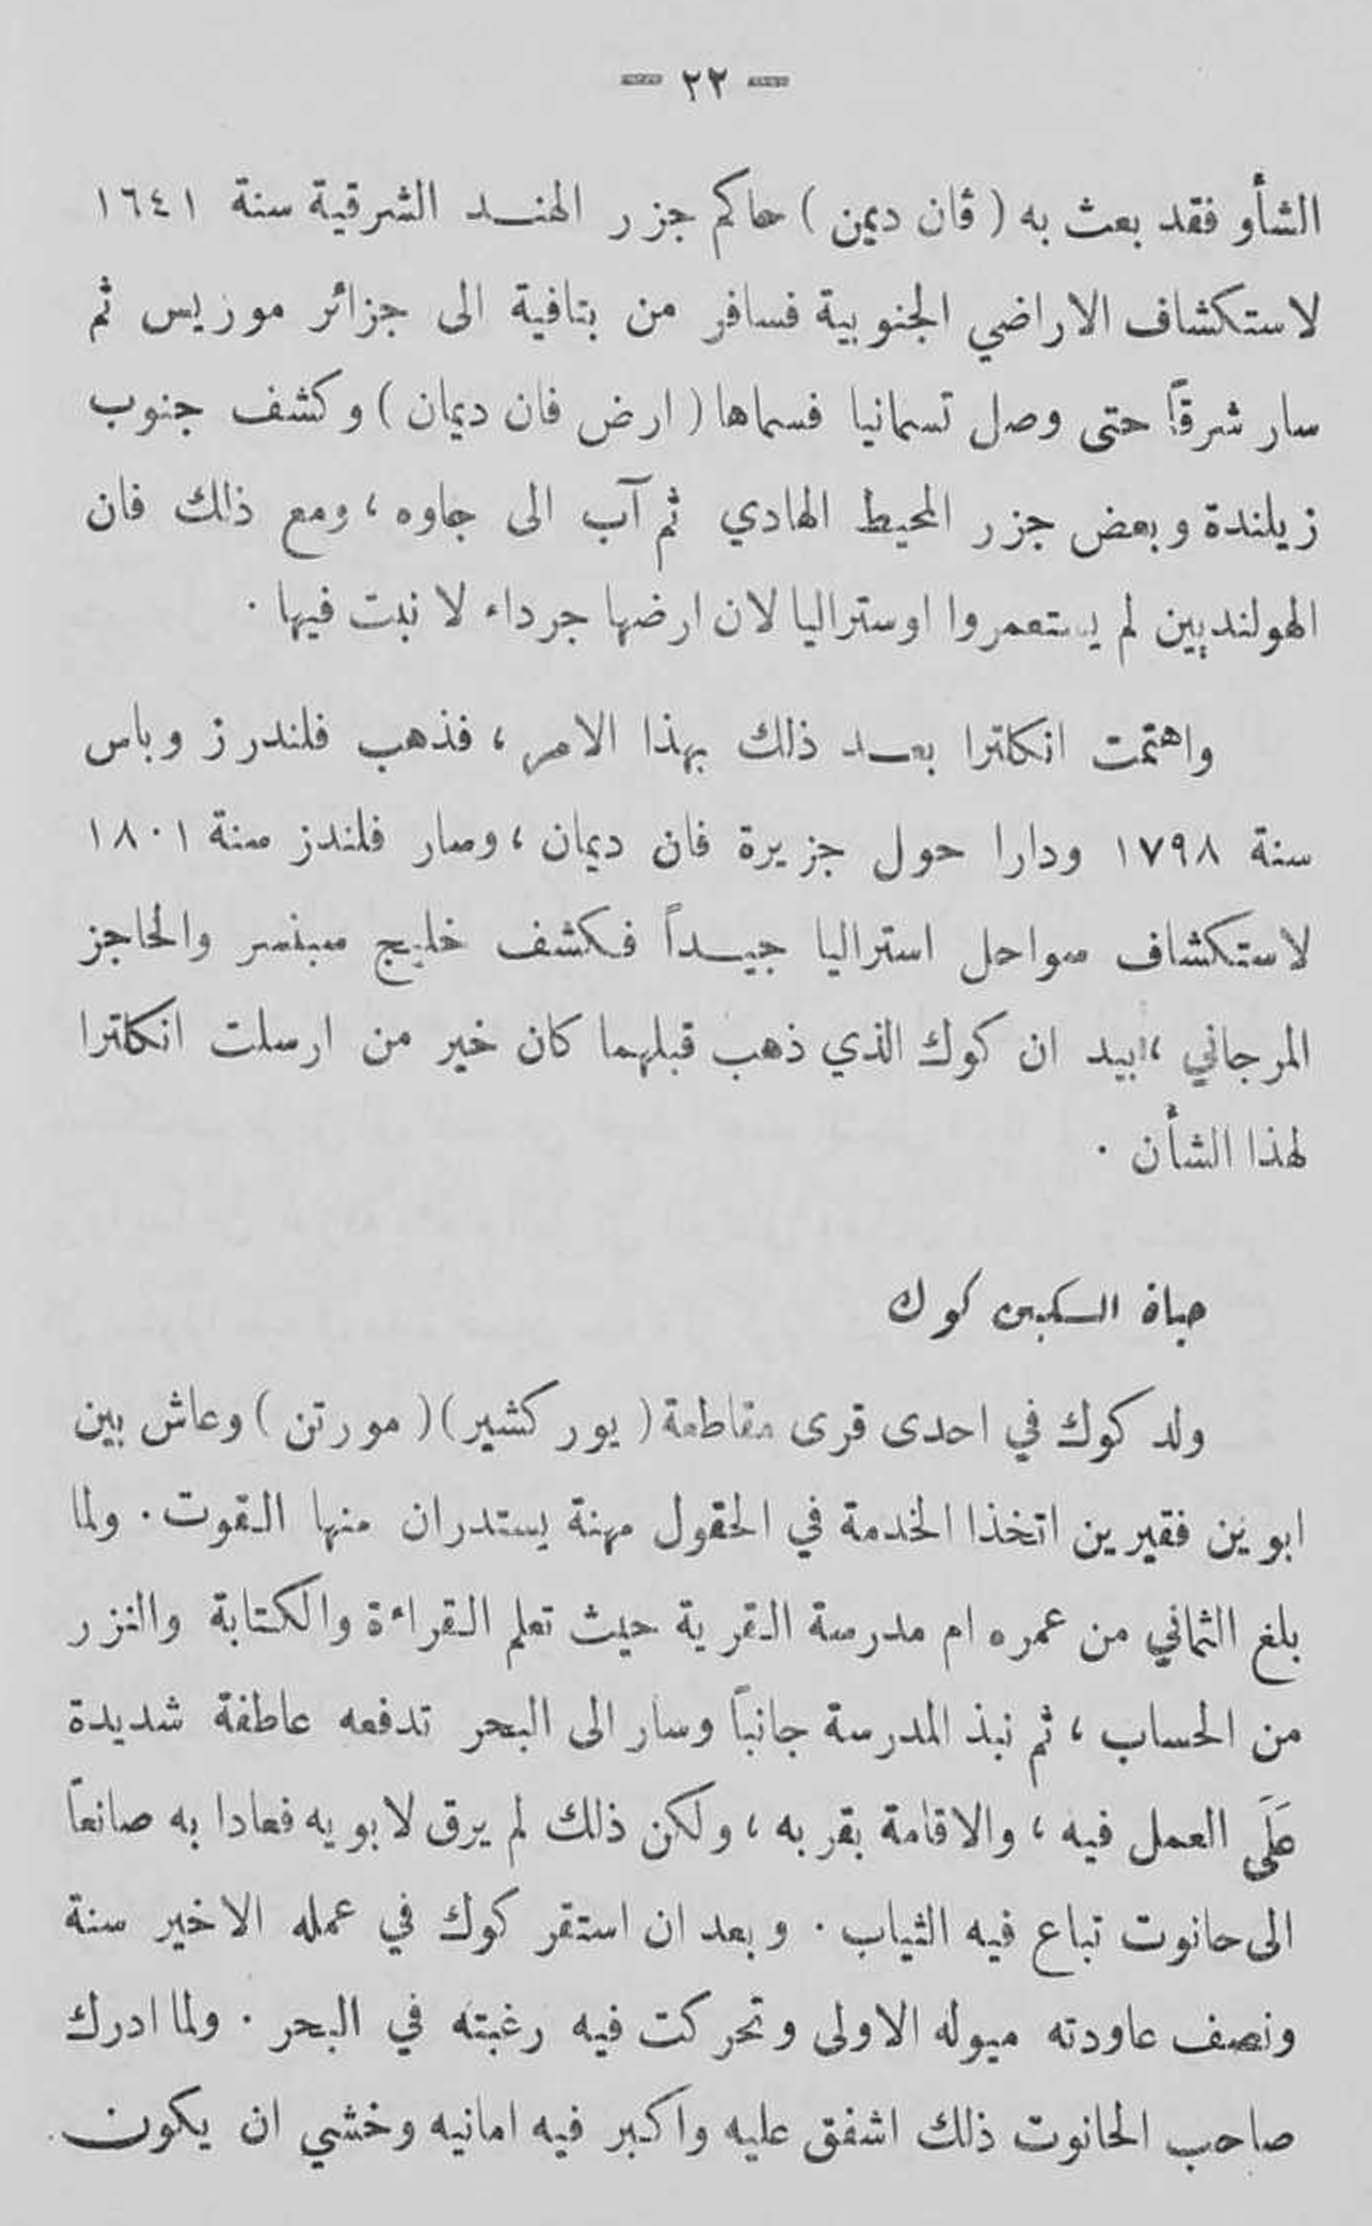 — ٢٢ —
الشأو فقد بعث به ( ڤان ديمن ) حاكم جزر الهند الشرقية سنة ١٦٤١
لاستكشاف الاراضي الجنوبية فسافر من بتافية الى جزائر موريس ثم
سار شرقاً حتى وصل تسمانيا فسماها ( ارض فان ديمان ) وكشف جنوب
زيلندة وبعض جزر المحيط الهادي ثم آب الى جاوه ، ومع ذلك فان
الهولنديين لم يستعمروا اوستراليا لان ارضها جرداء لا نبت فيها .
واهتمت انكلترا بعد ذلك بهذا الامر ، فذهب فلندرز وباس
سنة ١٧٩٨ ودارا حول جزيرة فان ديمان ، وسار فلندز سنة ١٨٠١
لاستكشاف سواحل استراليا جيداً فكشف خليج سبنسر والحاجز
المرجاني ، بيد ان كوك الذي ذهب قبلهما كان خير من ارسلت انكلترا
لهذا الشأن .
حياة الكبتن كوك
ولد كوك في احدى قرى مقاطعة ( يوركشير ) ( مورتن ) وعاش بين
ابوين فقيرين اتخذا الخدمة في الحقول مهنة يستدران منها القوت . ولما
بلغ الثماني من عمره ام مدرسة القرية حيث تعلم القراءة والكتابة والنزر
من الحساب ، ثم نبذ المدرسة جانباً وسار الى البحر تدفعه عاطفة شديدة
عَلَى العمل فيه ، والاقامة بقربه ، ولكن ذلك لم يرق لابويه فعادا به صانعاً
الى حانوت تباع فيه الثياب . وبعد ان استقر كوك في عمله الاخير سنة
ونصف عاودته ميوله الاولى وتحركت فيه رغبته في البحر . ولما ادرك
صاحب الحانوت ذلك اشفق عليه واكبر فيه امانيه وخشي ان يكون